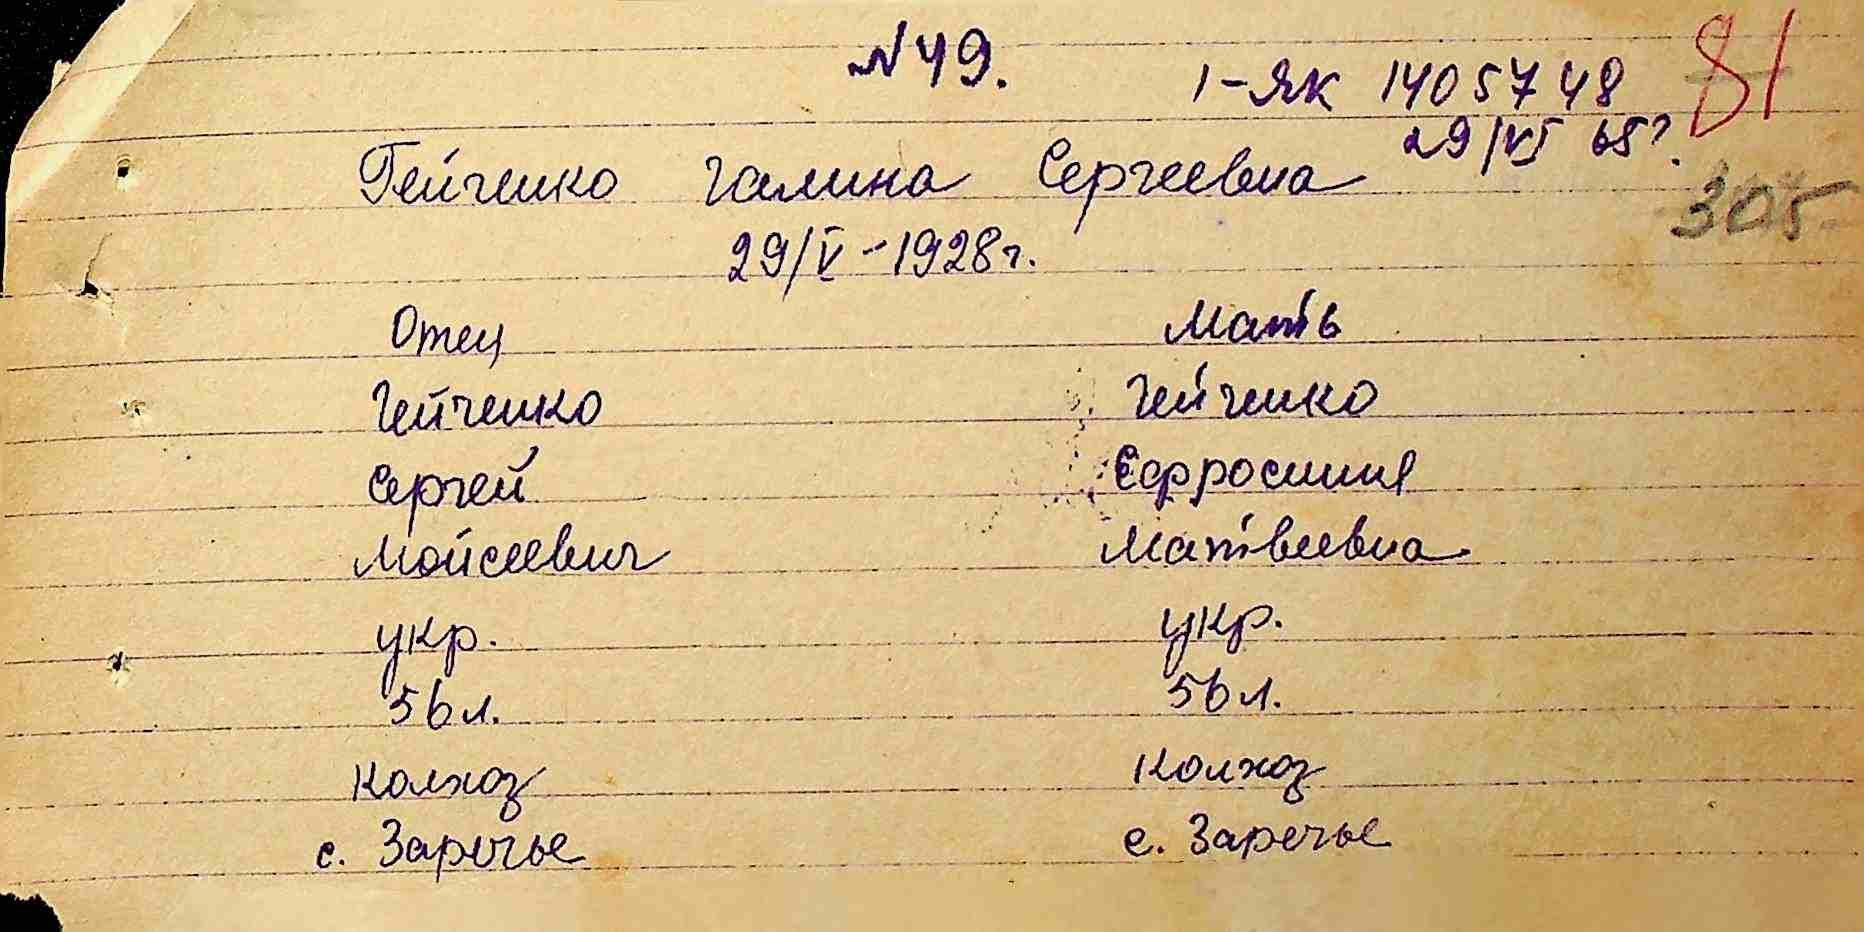 № 49.
1-ЯК 1405748
81
29/VI 65г.
Гейченко Галина Сергеевна
305
29/V - 1928 г.
Отец Мать
Гейченко Гейченко
Сергей Ефросиния
Мойсеевич Матвеевна
укр. укр.
56 л. 56 л.
колхоз колхоз
с. Заречье с. Заречье